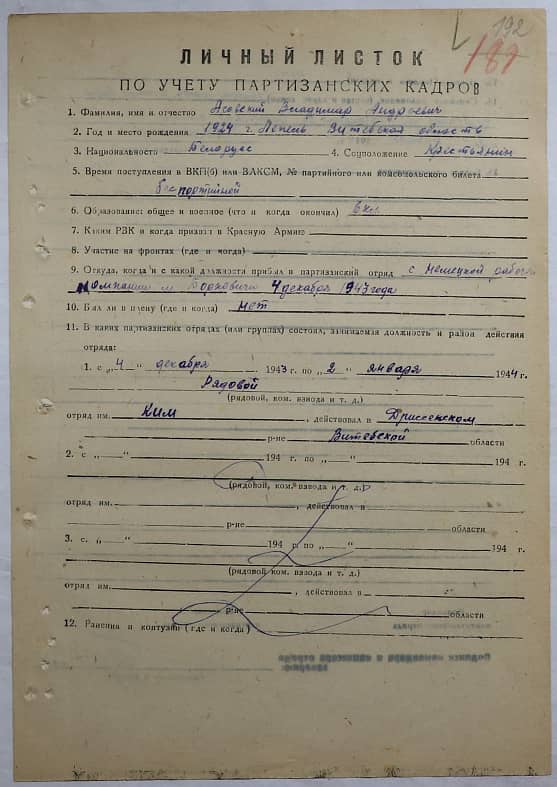 192
187
ЛИЧНЫЙ ЛИСТОК
ПО УЧЕТУ ПАРТИЗАНСКИХ КАДРОВ
1. Фамилия, имя и отчество Владимир Андреевич
2. Год и место рождения 1924 г. Лепель Витебская область
3. Национальность Белорус 4. Соцположение Крестьянин
5. Время поступления в ВКП(б) или ВЛКСМ, № партийного или комсомольского билета
беспартийный
6. Образование: общее и военное (что и когда окончил)
7. Каким РВК и когда призван в Красную Армию
8. Участие на фронтах (где и когда)
9. Откуда, когда и с какой должности прибыл в партизанский отряд с немецкой рабочей
компании м 4 декабря 1943 года
10. Был ли в плену (где и когда) нет
11. В каких партизанских отрядах (или группах) состоял, занимаемая должность и район действия
отряда:
1. с „4“ декабря 1943 г. по „2“ января 1944 г.
Рядовой
(рядовой, ком. взвода и т. д.)
отряд им. КИМ, действовал в Дриссенском
р-не Витебской области
2. с „ “ 194 г. по „ “ 194 г.
(рядовой, ком. взвода и т. д.)
отряд им. , действовал в
р-не области
3. с „ “ 194 г. по „ “ 194 г.
(рядовой, ком. взвода и т. д.)
отряд им. , действовал в
р-не области
12. Ранения и контузии (где и когда)